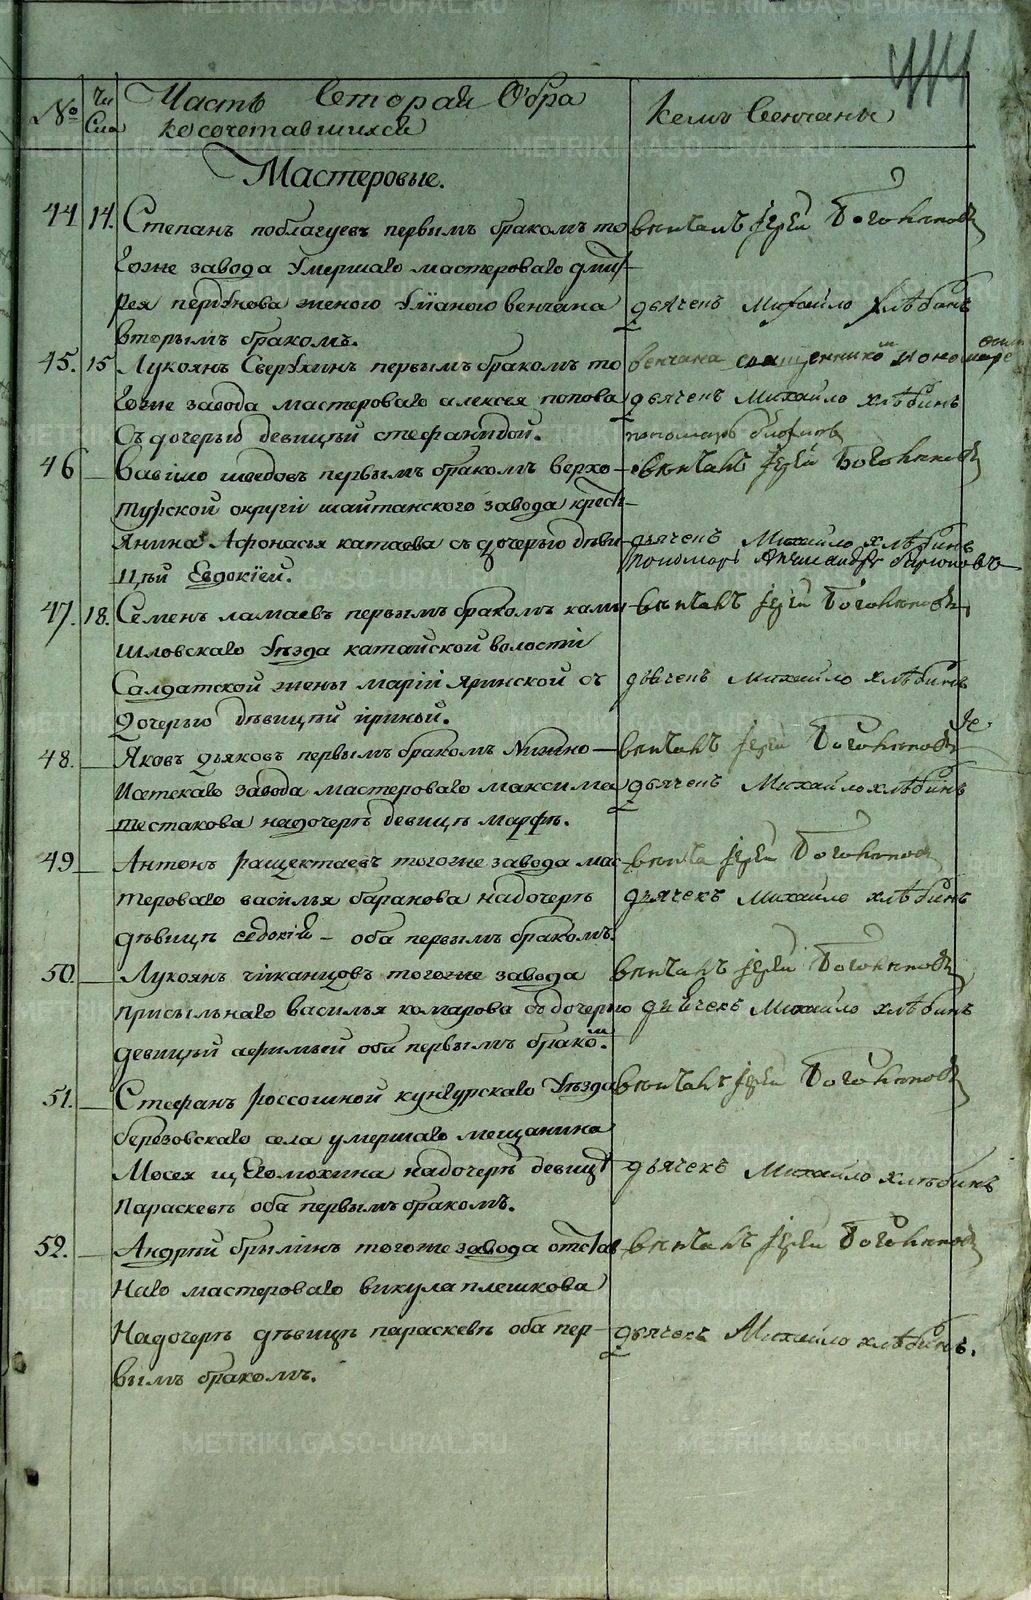 № Чи Сла Часть Вторая О бра
косочетавшихся
Кемъ Венчаны
Мастеровые.
44 14. Степанъ поблагуевъ первымъ бракомъ то
гоже завода умершаго мастероваго дмит
рея пердунова женою Ульяною венчана
вторымъ бракомъ.
венчалъ іерей
дьячекъ Михайло Хлѣбинъ
45. 15 Лукоянъ Сверкинъ первымъ бракомъ то
гоже завода мастероваго алексея попова
съ дочерью девицей стефанидой.
венчана священникомъ
дьячекъ Михайло хлѣбинъ
пономарь
46 Вавило шведовъ первымъ бракомъ верхо
турской округи шайтанского завода кресть
янина Афонасья катаева съ дочерью дѣви
цѣй Евдокіей.
венчанъ іерей
дьячекъ Михайло хлѣбинъ
пономарь Александръ
47. 18. Семенъ ламаевъ первымъ бракомъ камы
шловскаго уѣзда катайской волости
Салдатской жены маріи Яринской съ
дочерью дѣвицѣй ириной.
венчанъ іерей
дьячекъ Михайло хлѣбинъ
48. Яковъ дьяковъ первымъ бракомъ Нижно
Исетскаго завода мастероваго максима
шестакова надочерѣ девицѣ марфѣ.
венчанъ іерей
дьячекъ Михайло хлѣбинъ
49 Антонъ ращектаевъ тогоже завода мас
тероваго василья баранова надочерѣ
дѣвицѣ евдокіи – оба первымъ бракомъ.
венча іерей
дьячекъ Михайло хлѣбинъ
50. Лукоянъ чиканцовъ тогоже завода
присыльнаго василья комарова съ дочерью
девицѣй афимьей оба первымъ бракомъ.
венчанъ іерей
дьячекъ Михайло хлѣбинъ
51. Стефанъ россошной кунгурскаго уѣзда
березовскаго села умершаго мещанина
Мосея щеголихина надочерѣ девицѣ
Параскевѣ оба первымъ бракомъ.
венчанъ іерей
дьячекъ Михайло хлѣбинъ
52. Андрѣй брылинъ тогоже завода отстав
наго мастероваго викула плешкова
надочерѣ дѣвицѣ параскевѣ оба пер
вымъ бракомъ.
венчанъ іерей
дьячекъ Михайло хлѣбинъ.
METRIKI.GASO-URAL.RU